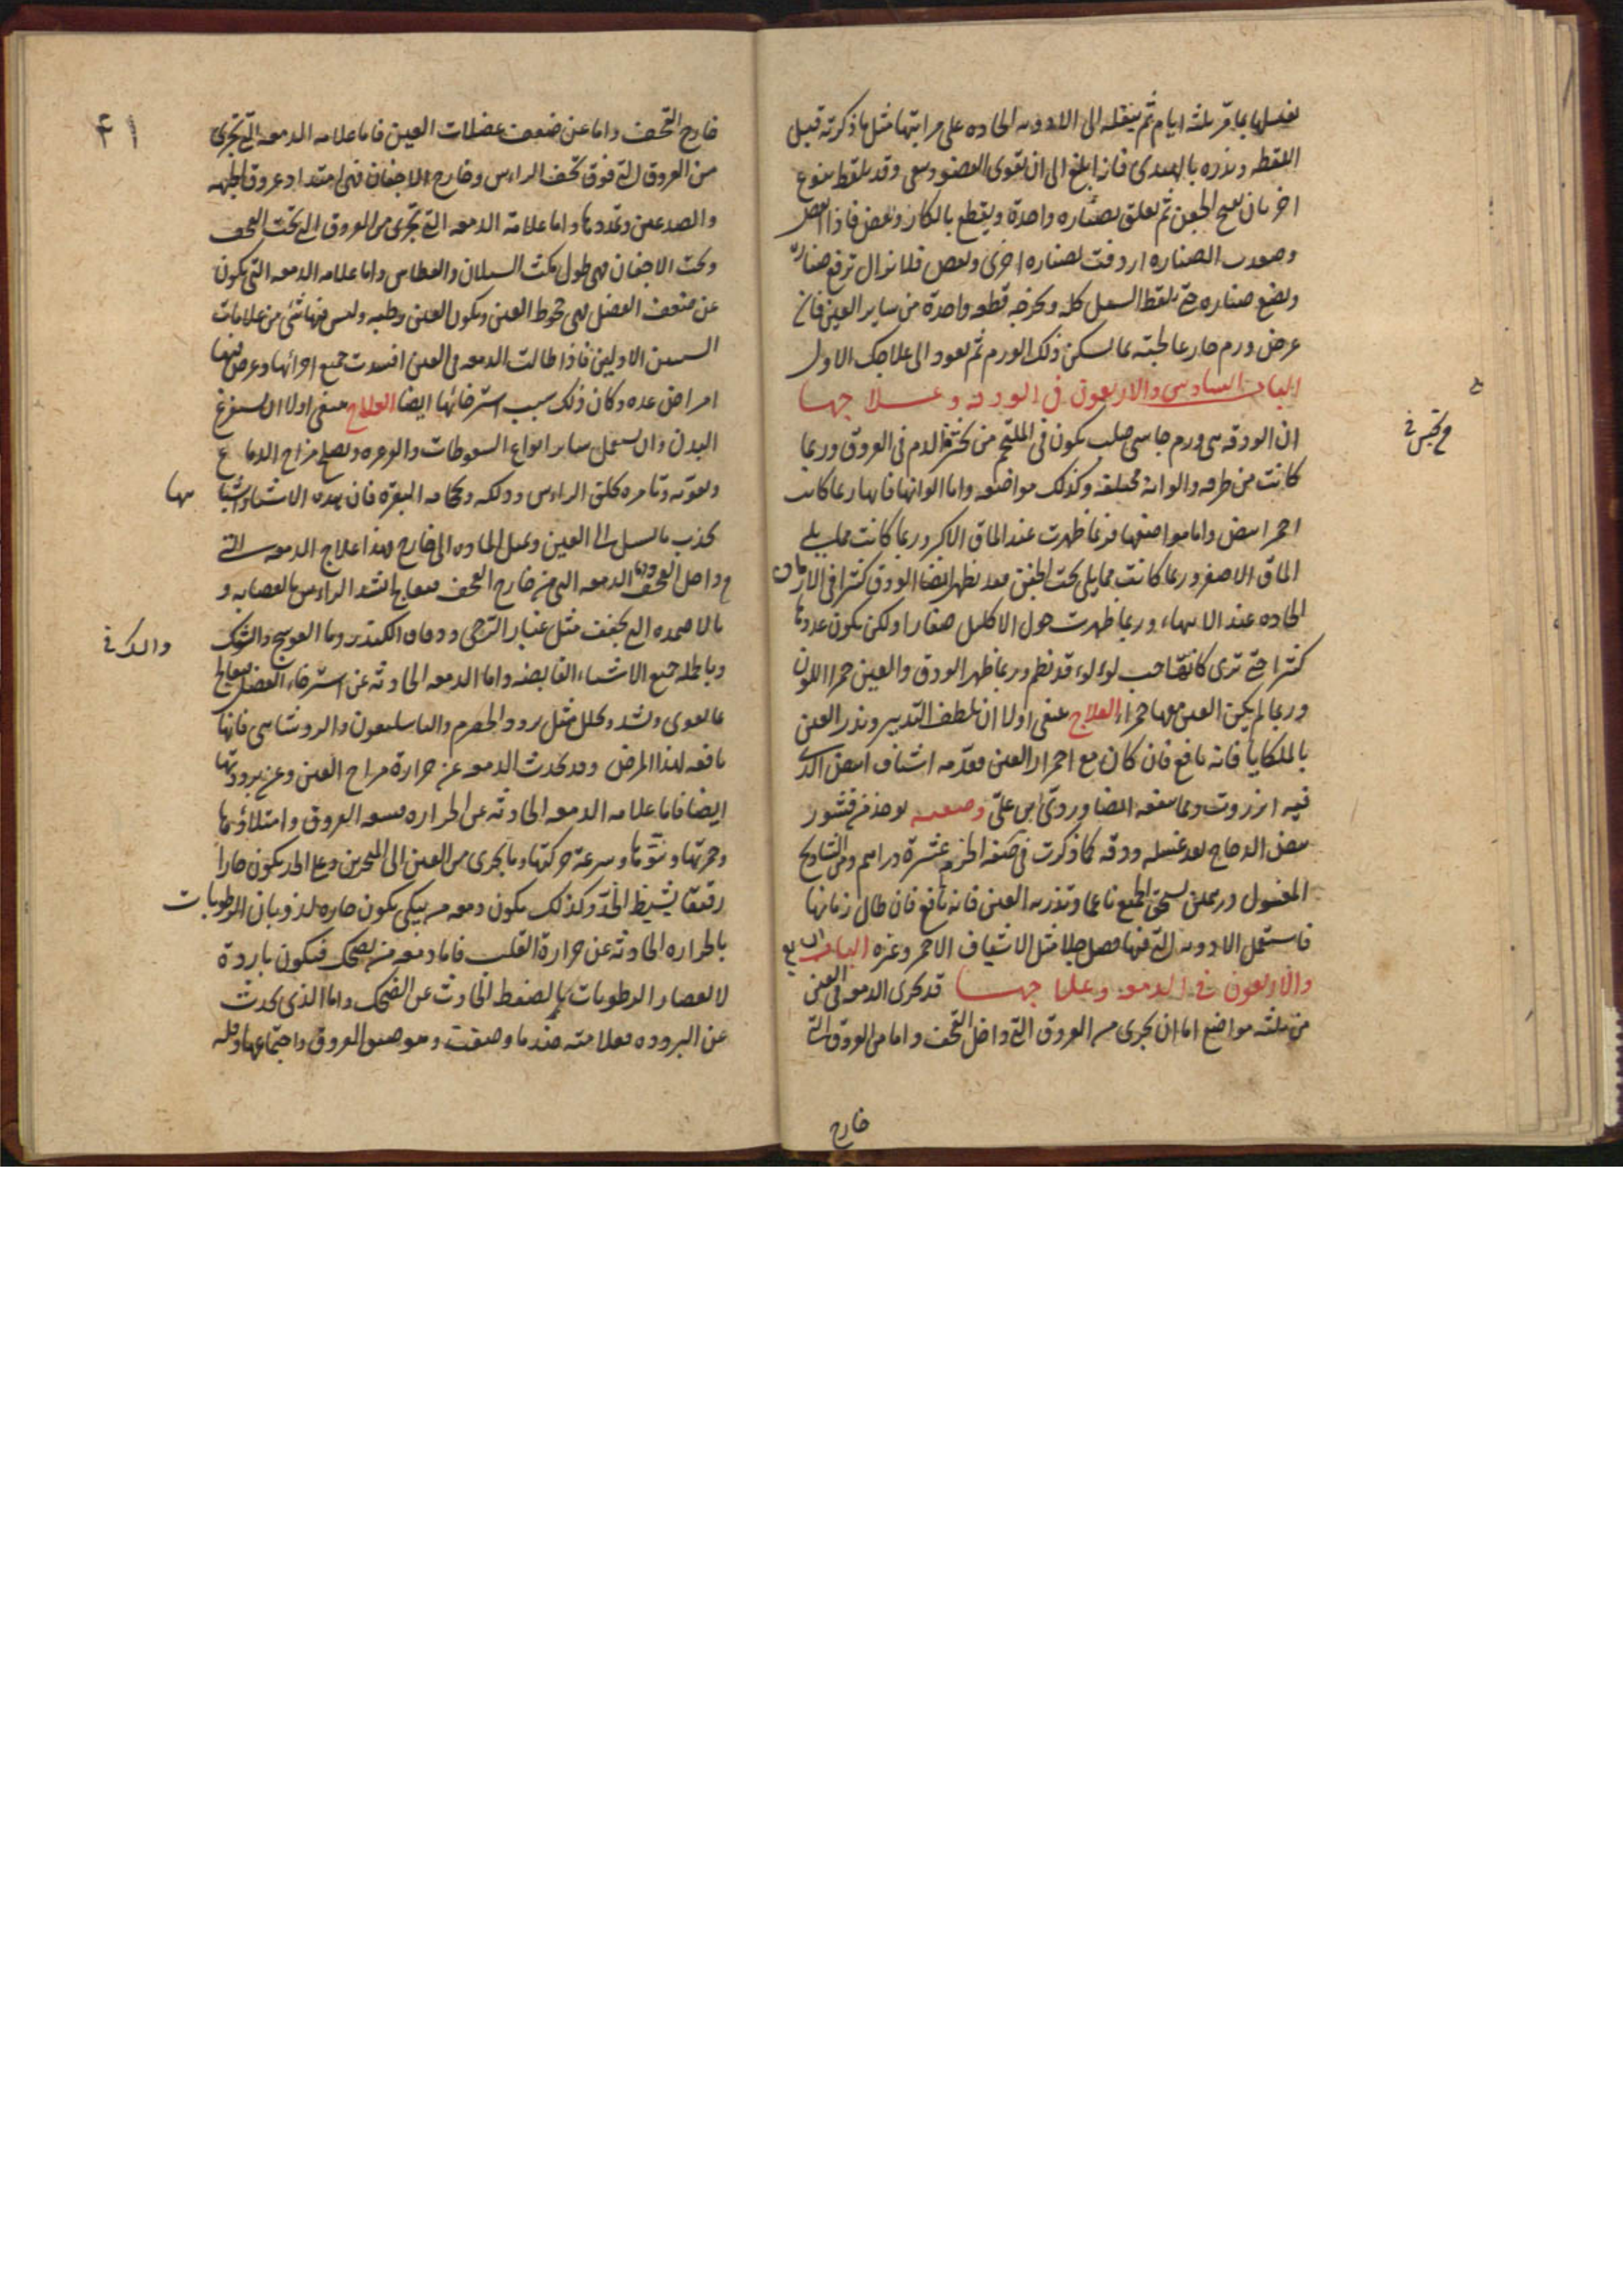 يغسلها بما قر ثلثه ايام ثم ينقله الى الادويه الحاده على مراتبها مثل ما ذكرته قبل
اللقط وتذره بالهندى فانه ابلغ الى ان يقوى العضو وقد يلقط بنوع
اخر بان يفتح الجفن ثم يعلق بصناره واحدة ويقطع بالكاز وبعض فاذا
وصعدت الصناره اردفت بصناره اخرى وبعض فلا تزال ترفع صنارة
وتضع صناره حتى يلقط السبل كله وتخرجه قطعه واحدة من ساير العين فان
عرض ورم حار عالجته بما يسكن ذلك الورم ثم تعود الى علاجك الاول
الباب السادس والاربعون فى الودقه وعلاجها
ان الودقه هى ورم جاسى صلب يكون فى الملتحم من كثرة الدم فى العروق وربما
كانت من طرفه والوانه مختلفه وكذلك مواضعه واما الوانها فانها ربما كانت
احمر ابيض واما مواضعها فربما ظهرت عند الماق الاكبر وربما كانت مما يلى
الماق الاصغر وربما كانت مما يلى تحت الجفن وقد تظهر ايضا الودق كثيرا فى الارمان
الحاده عند الانتهاء وربما ظهرت حول الاكليل صغارا ولكن يكون عددها
كثيرا حتى ترى كانها حب لولو قد نظم وربما ظهر الودق والعين حمرا اللون
وربما لم يكن العين معها حمراء العلاج ينبغى اولا ان تلطف التدبير وتذر العين
بالملكايا فانه نافع فان كان مع احمرار العين فقدمه اشياف ابيض الذى
فيه انزروت ومما ينفعه ايضا وردى ابن على وصفته يوخذ من قشور
بيض الدجاج بعد غسله ودقه كما ذكرت فى صفه الحزم عشرة دراهم ومن الشاذنج
المغسول درهمين يسحق الجميع ناعما وتذر به العين فانه نافع فان طال زمانها
فاستعمل الادويه التى فيها فضل جلا مثل الاشياف الاحمر وغيره الباب السابع
والاربعون فى الدمعه وعلاجها قد تجرى الدمعه فى العين
من ثلثه مواضع اما ان تجرى من العروق التى داخل القحف واما من العروق التى
خارج
٤١
خارج القحف واما عن ضعف عضلات العين فاما علامه الدمعه التى تجرى
من العروق التى فوق قحف الراس وخارج الاجفان فهى امتداد عروق الجبهه
والصدغين وتمددها واما علامة الدمعه التى تجرى من العروق التى تحت القحف
وتحت الاجفان فهى طول مكث السيلان والعطاس واما علامه الدمعه التى يكون
عن ضعف العضل فهى جحوظ العين ويكون العين رطبه وليس فيها شئ من علامات
السببين الاولين فاذا طالت الدمعه فى العين افسدت جميع اجزائها وعرض فيها
امراض عده وكان ذلك سبب استرخائها ايضا العلاج ينبغى اولا ان يستفرغ
البدن وان يستعمل ساير انواع السعوطات والغرغره ويصلح مزاج الدماغ
وتقويه وتامره بحلق الراس ودلكه وحجامه النقره فان هذه الاشياء
تجذب ما يسيل الى العين وتميل الماده الى خارج فهذا علاج الدمعه التى
داخل القحف واما الدمعه التى من خارج القحف فتعالج بشد الراس بالعصابه و
بالاضمده التى تجفف مثل غبار الرحى ودقاق الكندر وما العوسج والشوك
وبالجمله جميع الاشياء القابضه واما الدمعه الحادثه عن استرخاء العضل فتعالج
بما يقوى ويشد ويحلل مثل برود الحصرم والباسليقون والروشنايى فانها
نافعه لهذا المرض وقد تحدث الدمعه عن حرارة مزاج العين وعن برودتها
ايضا فاما علامه الدمعه الحادثه عن الحراره فسعه العروق وامتلاؤها
وحمرتها ونتوّها وسرعة حركتها وما يجرى من العين الى المنخرين وعلى الخد يكون حارا
رقيقا يشيط الخدّ وكذلك يكون دمعه من يبكى يكون حاره لذوبان الرطوبات
بالحراره الحادثه عن حرارة القلب فاما دمعه من يضحك فيكون باردة
لانعصار الرطوبات بالضغط الحادث عن الضحك واما الذى يحدث
عن البروده فعلامته ضد ما وصفت وهو ضيق العروق واجتماعها وقله